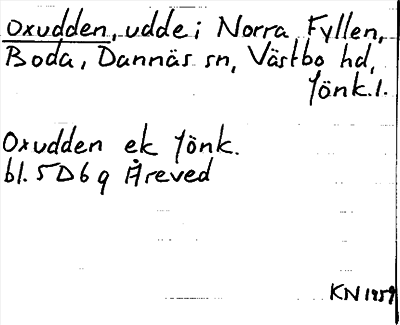 Oxudden, udde i Norra Fyllen,
Boda, Dannäs sn, Västbo hd,
Jönk.l.
Oxudden ek Jönk.
bl. 5D6g Åreved
KN 1959